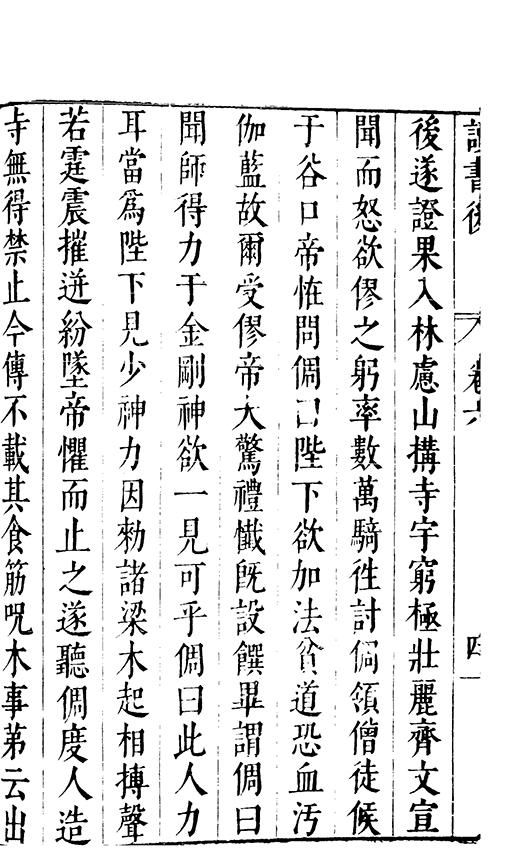 讀書後 卷六 四
後遂證果入林慮山搆寺宇窮極壯麗齊文宣
聞而怒欲僇之躬率數萬騎徃討倜領僧徒候
于谷口帝恠問倜曰陛下欲加法貧道恐血汚
伽藍故爾受僇帝大驚禮懺旣設饌畢謂倜曰
聞師得力于金剛神欲一見可乎倜曰此人力
耳當爲陛下見少神力因勑諸梁木起相摶聲
若霆震摧迸紛墜帝懼而止之遂聽倜度人造
寺無得禁止今傳不載其食筋呪木事第云出